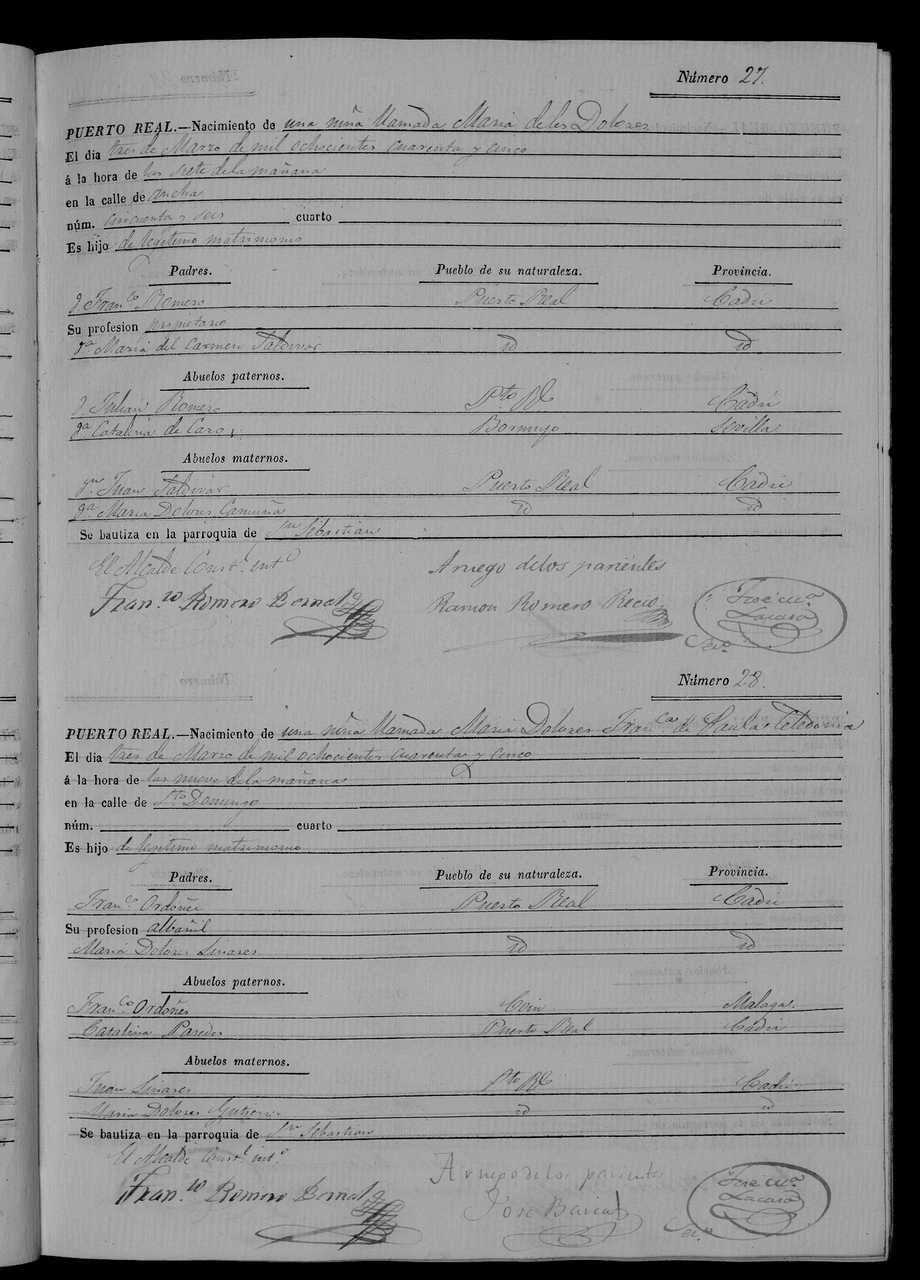 Número 27.
PUERTO REAL.—Nacimiento de una niña llamada Maria de los Dolores
El dia tres de Marzo de mil ochocientos cuarenta y cinco
á la hora de las siete de la mañana
en la calle de ancha
núm. cincuenta y seis cuarto
Es hijo de legitimo matrimonio
Padres. Pueblo de su naturaleza. Provincia.
Dn Franco Romero Puerto Real Cadiz
Su profesion propietario
Da Maria del Carmen Saldivar id id
Abuelos paternos.
Dn Julian Romero Pto Rl Cadiz
Da Catalina de Caro Bornujo Sevilla
Abuelos maternos.
Dn Juan Saldivar Puerto Real Cadiz
Da Maria Dolores id id
Se bautiza en la parroquia de Sn Sebastian
El Alcalde Constl intº A ruego de los parientes
Franco Romero Bernal Ramon Romero Recio José Ma
Lacasa
Srio
Número 28.
PUERTO REAL.—Nacimiento de una niña llamada Maria Dolores Franca de Paula Celedonia
El dia tres de Marzo de mil ochocientos cuarenta y cinco
á la hora de las nueve de la mañana
en la calle de Sto Domingo
núm. cuarto
Es hijo de legitimo matrimonio
Padres. Pueblo de su naturaleza. Provincia.
Franco Ordoñez Puerto Real Cadiz
Su profesion albañil
Maria Dolores Linares id id
Abuelos paternos.
Franco Ordoñes Coin Malaga.
Catalina Paredes Puerto Real Cadiz
Abuelos maternos.
Juan Linares Pto Rl Cadiz
Maria Dolores Gutierrez id id
Se bautiza en la parroquia de Sn Sebastian
El Alcalde Constl intº
A ruego de los parientes
Franco Romero Bernal José José Ma
Lacasa
Srio